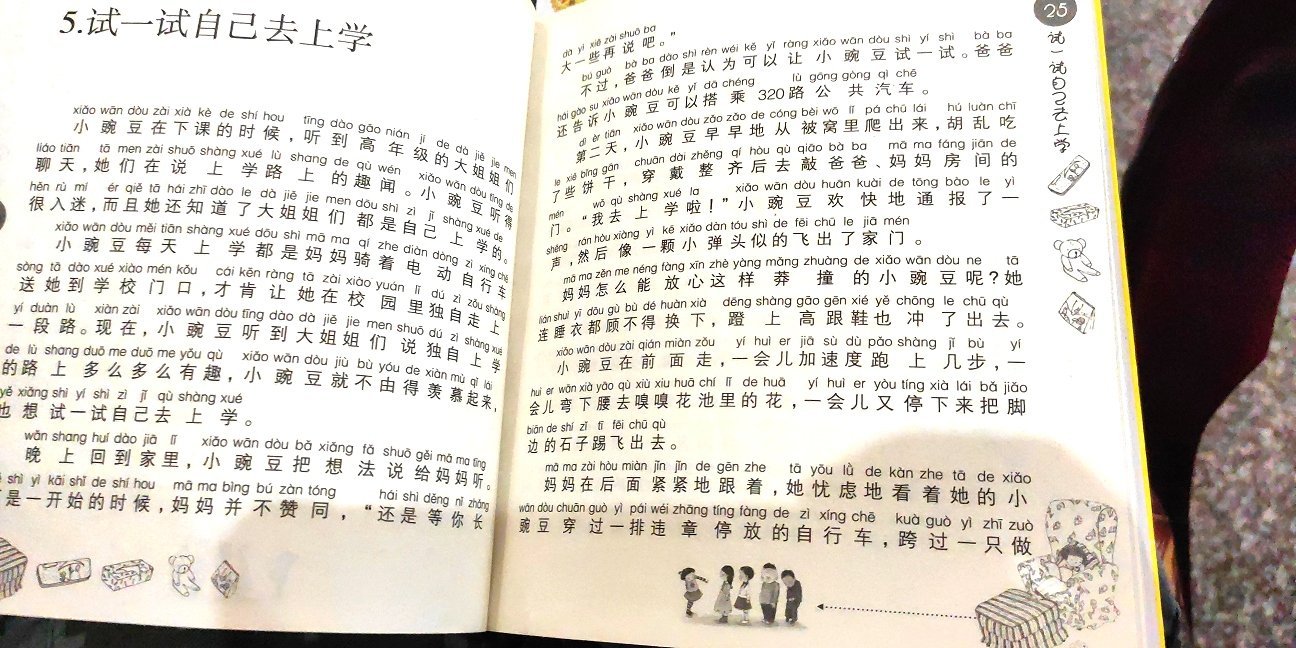 5.试一试自己去上学
xiǎo wān dòu zài xià kè de shí hou tīng dào gāo nián jí de dà jiě jie men
小豌豆在下课的时候，听到高年级的大姐姐们
liáo tiān tā men zài shuō shàng xué lù shang de qù wén xiǎo wān dòu tīng de
聊天，她们在说上学路上的趣闻。小豌豆听得
hěn rù mí ér qiě tā hái zhī dào le dà jiě jie men dōu shì zì jǐ shàng xué de
很入迷，而且她还知道了大姐姐们都是自己上学的。
xiǎo wān dòu měi tiān shàng xué dōu shì mā ma qí zhe diàn dòng zì xíng chē
小豌豆每天上学都是妈妈骑着电动自行车
sòng tā dào xué xiào mén kǒu cái kěn ràng tā zài xiào yuán lǐ dú zì zǒu shàng
送她到学校门口，才肯让她在校园里独自走上
yí duàn lù xiàn zài xiǎo wān dòu tīng dào dà jiě jie men shuō dú zì shàng xué
一段路。现在，小豌豆听到大姐姐们说独自上学
de lù shang duō me duō me yǒu qù xiǎo wān dòu jiù bù yóu de xiàn mù qǐ lái
的路上多么多么有趣，小豌豆就不由得羡慕起来，
yě xiǎng shì yí shì zì jǐ qù shàng xué
也想试一试自己去上学。
wǎn shang huí dào jiā lǐ xiǎo wān dòu bǎ xiǎng fǎ shuō gěi mā ma tīng
晚上回到家里，小豌豆把想法说给妈妈听。
shì yì kāi shǐ de shí hou mā ma bìng bú zàn tóng hái shì děng nǐ zhǎng
是一开始的时候，妈妈并不赞同，“还是等你长
25
试一试自己去上学
dà yì xiē zài shuō ba
大一些再说吧。”
bú guò bà ba dào shì rèn wéi kě yǐ ràng xiǎo wān dòu shì yí shì bà ba
不过，爸爸倒是认为可以让小豌豆试一试。爸爸
hái gào su xiǎo wān dòu kě yǐ dā chéng lù gōng gòng qì chē
还告诉小豌豆可以搭乘320路公共汽车。
dì èr tiān xiǎo wān dòu zǎo zǎo de cóng bèi wō lǐ pá chū lái hú luàn chī
第二天，小豌豆早早地从被窝里爬出来，胡乱吃
le xiē bǐng gān chuān dài zhěng qí hòu qù qiāo bà ba mā ma fáng jiān de
了些饼干，穿戴整齐后去敲爸爸、妈妈房间的
mén wǒ qù shàng xué la xiǎo wān dòu huān kuài de tōng bào le yì
门。“我去上学啦！”小豌豆欢快地通报了一
shēng rán hòu xiàng yì kē xiǎo dàn tóu shì de fēi chū le jiā mén
声，然后像一颗小弹头似的飞出了家门。
mā ma zěn me néng fàng xīn zhè yàng mǎng zhuàng de xiǎo wān dòu ne tā
妈妈怎么能放心这样莽撞的小豌豆呢？她
lián shuì yī dōu gù bù dé huàn xià dēng shàng gāo gēn xié yě chōng le chū qù
连睡衣都顾不得换下，蹬上高跟鞋也冲了出去。
xiǎo wān dòu zài qián miàn zǒu yí huì er jiā sù dù pǎo shàng jǐ bù yí
小豌豆在前面走，一会儿加速度跑上几步，一
huì er wān xià yāo qù xiù xiu huā chí lǐ de huā yí huì er yòu tíng xià lái bǎ jiǎo
会儿弯下腰去嗅嗅花池里的花，一会儿又停下来把脚
biān de shí zǐ tī fēi chū qù
边的石子踢飞出去。
mā ma zài hòu miàn jǐn jǐn de gēn zhe tā yōu lǜ de kàn zhe tā de xiǎo
妈妈在后面紧紧地跟着，她忧虑地看着她的小
wān dòu chuān guò yì pái wéi zhāng tíng fàng de zì xíng chē kuà guò yì zhī zuò
豌豆穿过一排违章停放的自行车，跨过一只做